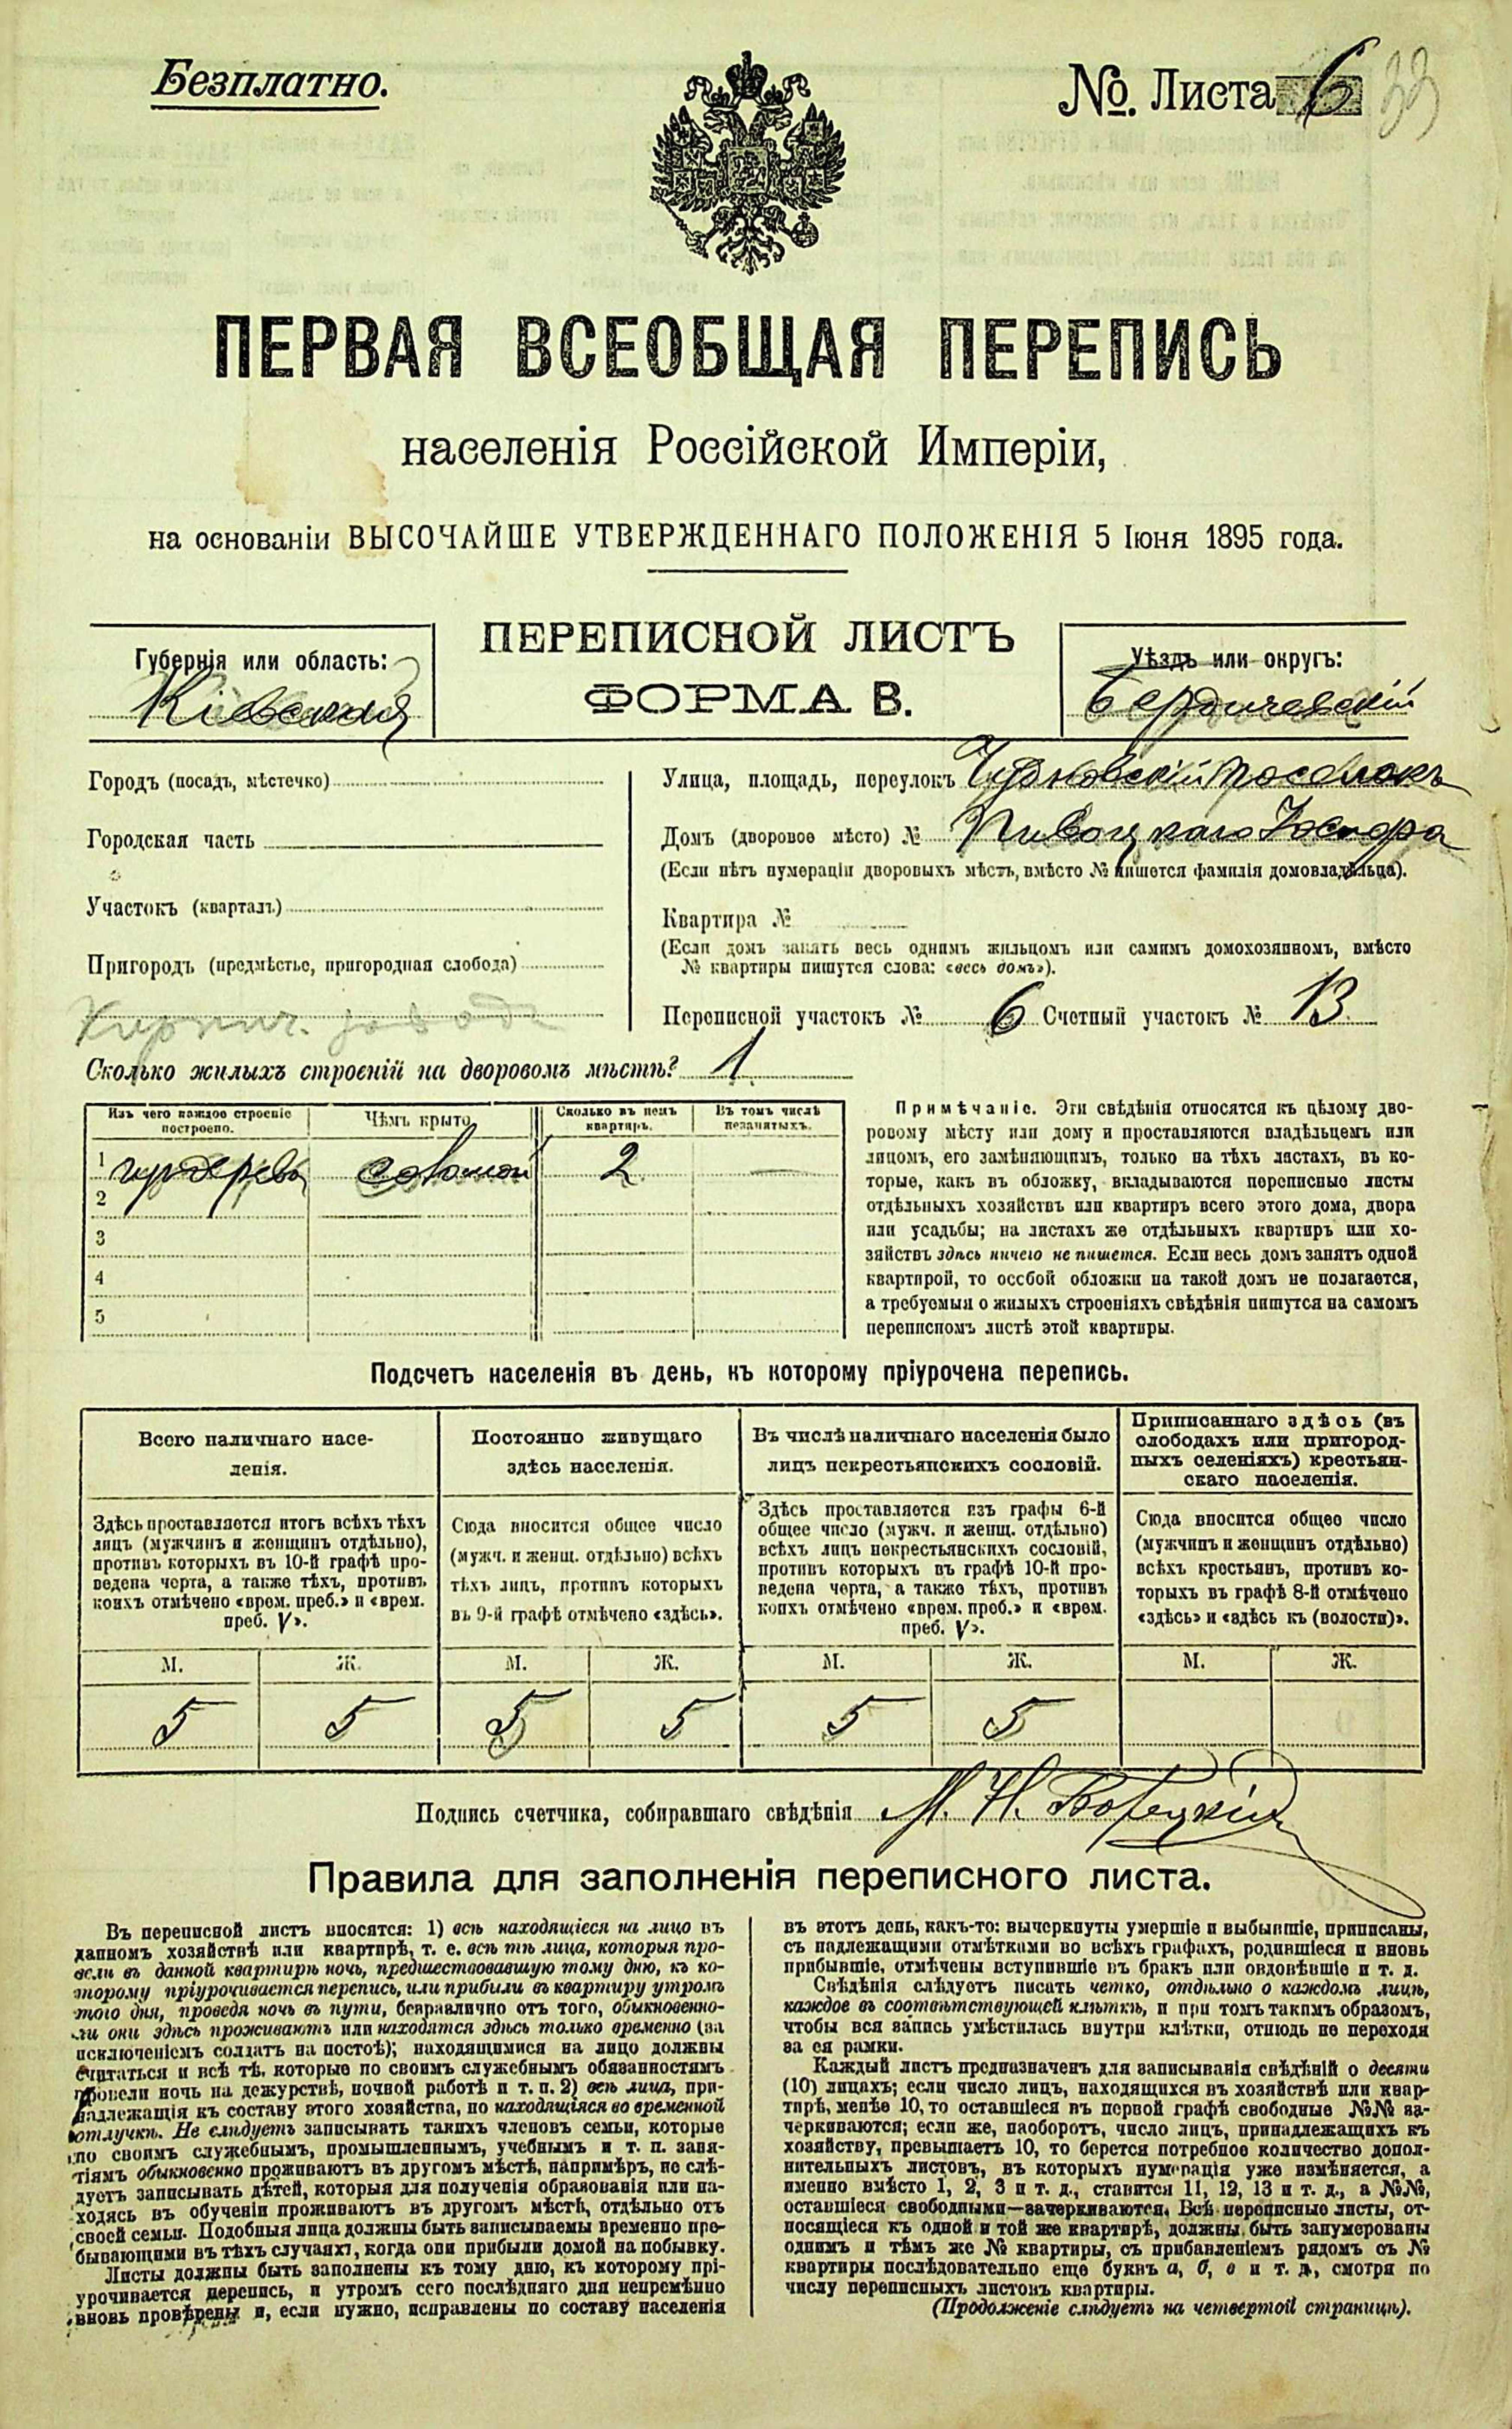 Безплатно.
№ Листа 6 33
ПЕРВАЯ ВСЕОБЩАЯ ПЕРЕПИСЬ
населенія Россійской Имперіи,
на основаніи ВЫСОЧАЙШЕ УТВЕРЖДЕННАГО ПОЛОЖЕНІЯ 5 Іюня 1895 года.
ПЕРЕПИСНОЙ ЛИСТЪ
ФОРМА В.
Губернія или область:
Кіевская
Уѣздъ или округъ:
Бердичевскій
Городъ (посадъ, мѣстечко)
Городская часть
Участокъ (кварталъ)
Пригородъ (предмѣстье, пригородная слобода)
Кирпич. завода
Улица, площадь, переулокъ Чудновскій поселокъ
Домъ (дворовое мѣсто) №
(Если нѣтъ нумераціи дворовыхъ мѣстъ, вмѣсто № пишется фамилія домовладѣльца).
Квартира №
(Если домъ занятъ весь однимъ жильцомъ или самимъ домохозяиномъ, вмѣсто
№ квартиры пишутся слова: «весь домъ»).
Переписной участокъ № 6 Счетный участокъ № 13
Сколько жилыхъ строеній на дворовомъ мѣстѣ? 1
Изъ чего каждое строеніе построено.
Чѣмъ крыто
Сколько въ немъ квартиръ.
Въ томъ числѣ незанятыхъ.
1 соломой 2 —
2
3
4
5
Примѣчаніе. Эти свѣдѣнія относятся къ цѣлому дво-
ровому мѣсту или дому и проставляются владѣльцемъ или
лицомъ, его замѣняющимъ, только на тѣхъ листахъ, въ ко-
торые, какъ въ обложку, вкладываются переписные листы
отдѣльныхъ хозяйствъ или квартиръ всего этого дома, двора
или усадьбы; на листахъ же отдѣльныхъ квартиръ или хо-
зяйствъ здѣсь ничего не пишется. Если весь домъ занятъ одной
квартирой, то особой обложки на такой домъ не полагается,
а требуемыя о жилыхъ строеніяхъ свѣдѣнія пишутся на самомъ
переписномъ листѣ этой квартиры.
Подсчетъ населенія въ день, къ которому пріурочена перепись.
Всего наличнаго насе-
ленія.
Здѣсь проставляется итогъ всѣхъ тѣхъ
лицъ (мужчинъ и женщинъ отдѣльно),
противъ которыхъ въ 10-й графѣ про-
ведена черта, а также тѣхъ, противъ
коихъ отмѣчено «врем. преб.» и «врем.
преб. V».
Постоянно живущаго
здѣсь населенія.
Сюда вносится общее число
(мужч. и женщ. отдѣльно) всѣхъ
тѣхъ лицъ, противъ которыхъ
въ 9-й графѣ отмѣчено «здѣсь».
Въ числѣ наличнаго населенія было
лицъ некрестьянскихъ сословій.
Здѣсь проставляется изъ графы 6-й
общее число (мужч. и женщ. отдѣльно)
всѣхъ лицъ некрестьянскихъ сословій,
противъ которыхъ въ графѣ 10-й про-
ведена черта, а также тѣхъ, противъ
коихъ отмѣчено «врем. преб.» и «врем.
преб. V».
Приписаннаго здѣсь (въ
слободахъ или пригород-
ныхъ селеніяхъ) крестьян-
скаго населенія.
Сюда вносится общее число
(мужчинъ и женщинъ отдѣльно)
всѣхъ крестьянъ, противъ ко-
торыхъ въ графѣ 8-й отмѣчено
«здѣсь» и «здѣсь къ (волости)».
М. Ж. М. Ж. М. Ж. М. Ж.
5 5 5 5 5 5
Подпись счетчика, собиравшаго свѣдѣнія М. Н.
Правила для заполненія переписного листа.
Въ переписной листъ вносятся: 1) всѣ находящіеся на лицо въ
данномъ хозяйствѣ или квартирѣ, т. е. всѣ тѣ лица, которыя про-
вели въ данной квартирѣ ночь, предшествовавшую тому дню, къ ко-
торому пріурочивается перепись, или прибыли въ квартиру утромъ
того дня, проведя ночь въ пути, безразлично отъ того, обыкновенно-
ли они здѣсь проживаютъ или находятся здѣсь только временно (за
исключеніемъ солдатъ на постоѣ); находящимися на лицо должны
считаться и всѣ тѣ, которые по своимъ служебнымъ обязанностямъ
провели ночь на дежурствѣ, ночной работѣ и т. п. 2) всѣ лица, при-
надлежащія къ составу этого хозяйства, но находящіяся во временной
отлучкѣ. Не слѣдуетъ записывать такихъ членовъ семьи, которые
по своимъ служебнымъ, промышленнымъ, учебнымъ и т. п. заня-
тіямъ обыкновенно проживаютъ въ другомъ мѣстѣ, напримѣръ, не слѣ-
дуетъ записывать дѣтей, которыя для полученія образованія или на-
ходясь въ обученіи проживаютъ въ другомъ мѣстѣ, отдѣльно отъ
своей семьи. Подобныя лица должны быть записываемы временно пре-
бывающими въ тѣхъ случаяхъ, когда они прибыли домой на побывку.
Листы должны быть заполнены къ тому дню, къ которому прі-
урочивается перепись, и утромъ сего послѣдняго дня непремѣнно
вновь провѣрены и, если нужно, исправлены по составу населенія
въ этотъ день, какъ-то: вычеркнуты умершіе и выбывшіе, приписаны,
съ надлежащими отмѣтками во всѣхъ графахъ, родившіеся и вновь
прибывшіе, отмѣчены вступившіе въ бракъ или овдовѣвшіе и т. д.
Свѣдѣнія слѣдуетъ писать четко, отдѣльно о каждомъ лицѣ,
каждое въ соотвѣтствующей клѣткѣ, и при томъ такимъ образомъ,
чтобы вся запись умѣстилась внутри клѣтки, отнюдь не переходя
за ея рамки.
Каждый листъ предназначенъ для записыванія свѣдѣній о десяти
(10) лицахъ; если число лицъ, находящихся въ хозяйствѣ или квар-
тирѣ, менѣе 10, то оставшіеся въ первой графѣ свободные №№ за-
черкиваются; если же, наоборотъ, число лицъ, принадлежащихъ къ
хозяйству, превышаетъ 10, то берется потребное количество допол-
нительныхъ листовъ, въ которыхъ нумерація уже измѣняется, а
именно вмѣсто 1, 2, 3 и т. д., ставится 11, 12, 13 и т. д., а №№,
оставшіеся свободными—зачеркиваются. Всѣ переписные листы, от-
носящіеся къ одной и той же квартирѣ, должны быть занумерованы
однимъ и тѣмъ же № квартиры, съ прибавленіемъ рядомъ съ №
квартиры послѣдовательно еще буквъ а, б, в и т. д., смотря по
числу переписныхъ листовъ квартиры.
(Продолженіе слѣдуетъ на четвертой страницѣ).